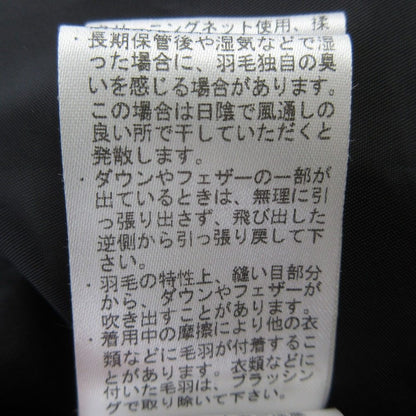 ング ネット使用、揉
・長期保管後や湿気などで湿
った場合に、羽毛独自の臭
いを感じる場合があります。
この場合は日陰で風通しの
良い所で干していただくと
発散します。
・ダウンやフェザーの一部が
出ているときは、無理に引
っ張り出さず、飛び出した
逆側から引っ張り戻して下
さい。
・羽毛の特性上、縫い目部分
から、ダウンやフェザーが
吹き出すことがあります。
・着用中の摩擦により他の衣
類などに毛羽が付着するこ
とがあります。衣類などに
付いた毛羽は、ブラッシン
グで取り除いて下さい。